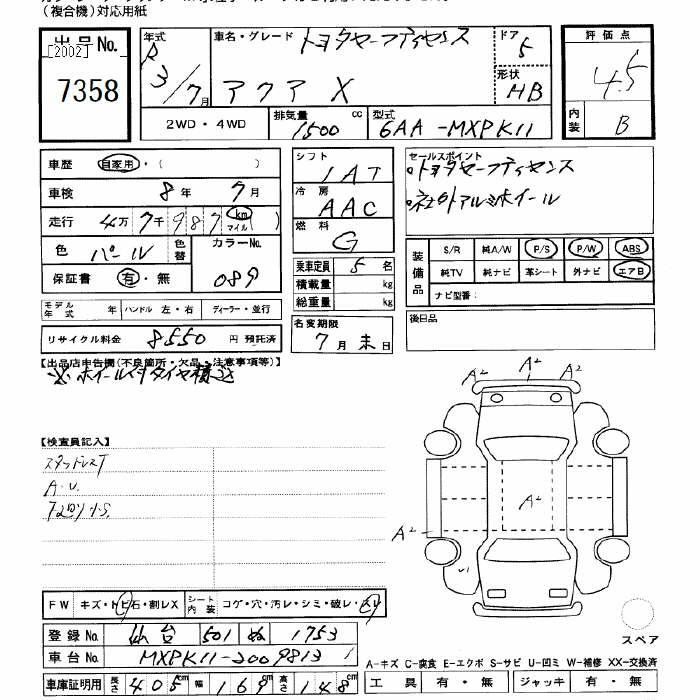 （複合機）対応用紙
出品No.
[2002]
7358
年式
R
3/7月
車名・グレード
トヨタセーフティセンス
アクア X
ドア
5
形状
HB
評価点
4.5
内装
B
2WD・4WD
排気量
1500
cc
型式
6AA-MXPK11
車歴
自家用・( )
車検
8年 7月
走行
4万7千987
km
マイル
色
パール
色替
カラーNo.
089
保証書
有・無
シフト
IAT
冷房
AAC
燃料
G
乗車定員 5名
積載量 kg
総重量 kg
セールスポイント
・トヨタセーフティセンス
・社外アルミホイール
装備品
S/R 純A/W P/S P/W ABS
純TV 純ナビ 革シート 外ナビ エアB
ナビ型番:
モデル年式 年 ハンドル 左・右 ディーラー・並行
リサイクル料金 8550円 預託済
名変期限
7月末日
後日品
【出品店申告欄(不良箇所・欠品・注意事項等)】
※ホイール付タイヤ積込
【検査員記入】
スタッドレスT
A.U.
下廻り小S.
A2 A2 A2
A2
A2
U1
FW キズ・トビ石・割レX シート内装 コゲ・穴・汚レ・シミ・破レ・スレ
登録No. 仙台 501 ぬ 1753
車台No. MXPK11-2009813
車庫証明用 長さ 405cm 幅 169cm 高さ 148cm
スペア
A-キズ C-腐食 E-エクボ S-サビ U-凹ミ W-補修 XX-交換済
工具 有・無 ジャッキ 有・無